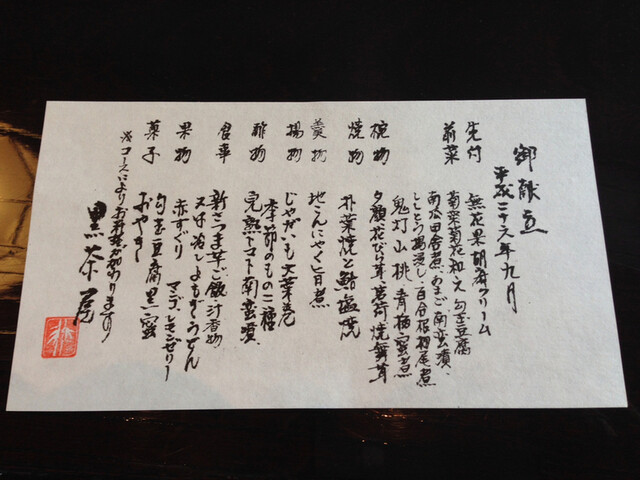 御献立
平成二十六年九月
先付 無花果胡麻クリーム
前菜 菊菜菊花和え 勾玉豆腐
南瓜田舎煮、あまご南蛮漬、
ししとう揚浸し、百合根初尾煮
鬼灯山桃 青梅蜜煮
椀物 夕顔花びら茸、茗荷焼舞茸
焼物 朴葉焼と鮎塩焼
羹物 地こんにゃく旨煮
揚物 じゃがいも大葉巻
季節のもの二種
酢物 完熟トマト南蛮漬
食事 新さつま芋ご飯 汁 香物
又は冷しよもぎうどん
果物 赤すぐり マンゴ
菓子 勾玉豆腐黒蜜
おやき
※コースによりお料理が変わります
黒茶屋